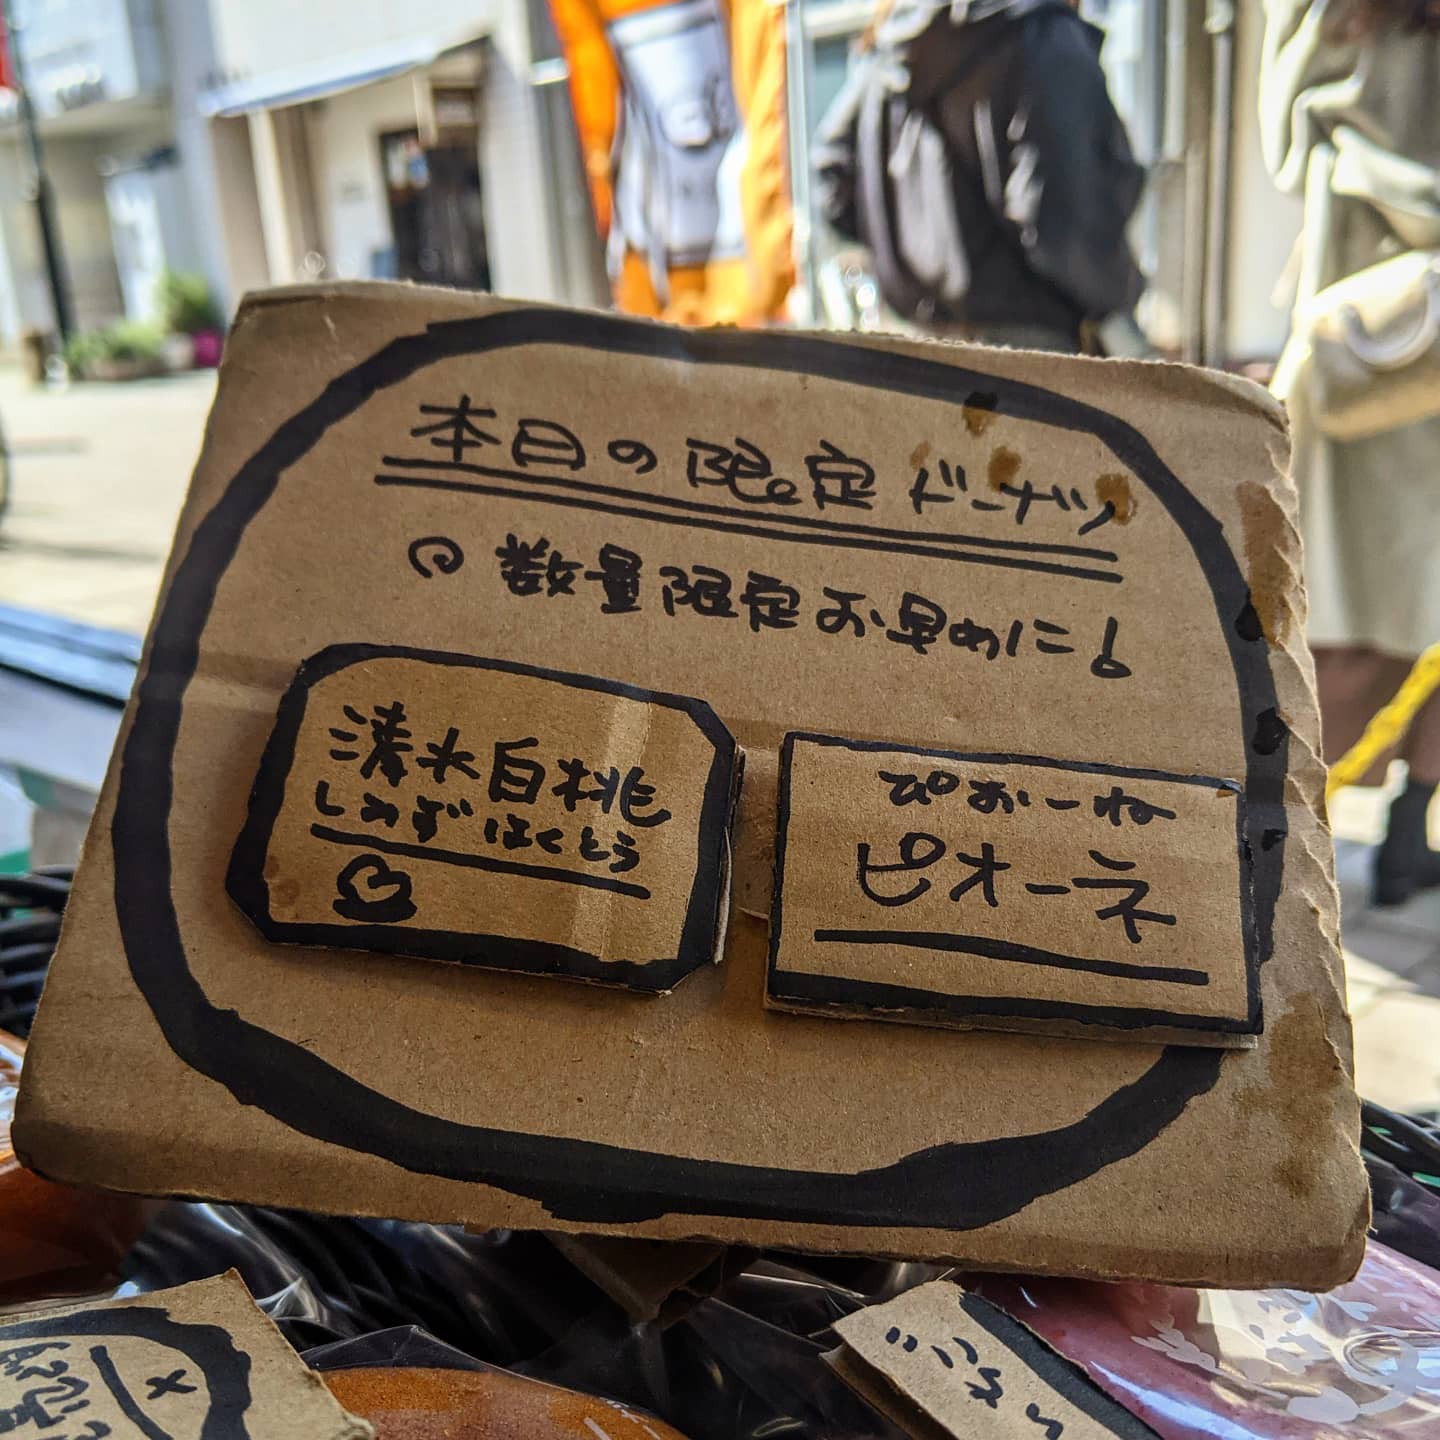 本日の限定ドーナツ
数量限定お早めに!
清水白桃
しみずはくとう
ぴおーね
ピオーネ